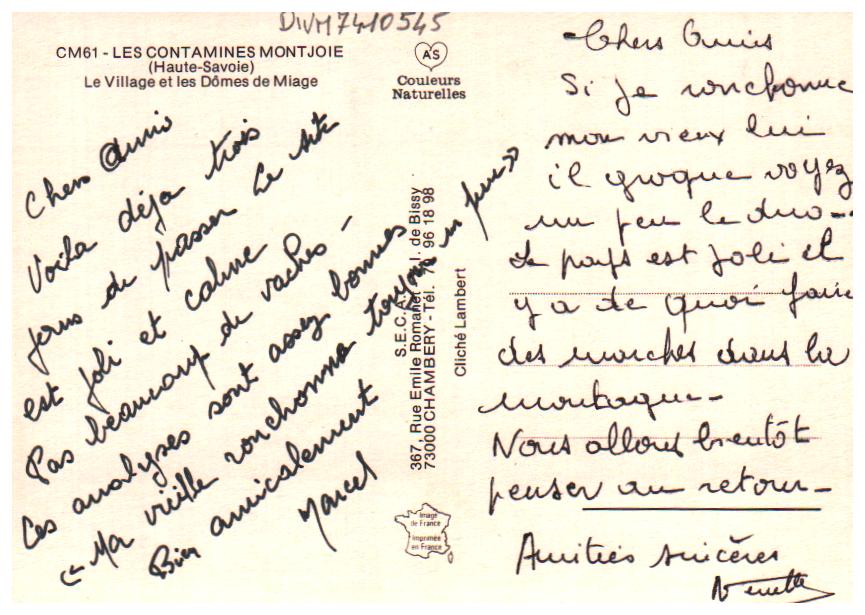 DIVM7410545
CM61 - LES CONTAMINES MONTJOIE
(Haute-Savoie)
Le Village et les Dômes de Miage
AS
Couleurs
Naturelles
Chers Amis
Voila déja trois
jours de passer Le site
est joli et calme
Pas beaucoup de vaches -
Les analyses sont assez bonnes
Ma vieille ronchonna toujours un peu
Bien amicalement
Marcel
S.E.C.A.
367, Rue Emile Romanet - Z.I. de Bissy
73000 CHAMBERY - Tél. 79 96 18 98
Cliché Lambert
Image
de France
Imprimée
en France
Chers Amis
Si je ronchonne
mon vieux lui
il grogne voyez
un peu le duo --
Le pays est joli et
y a de quoi faire
des marches dans la
montagne -
Nous allons bientôt
penser au retour -
Amitiés sincères